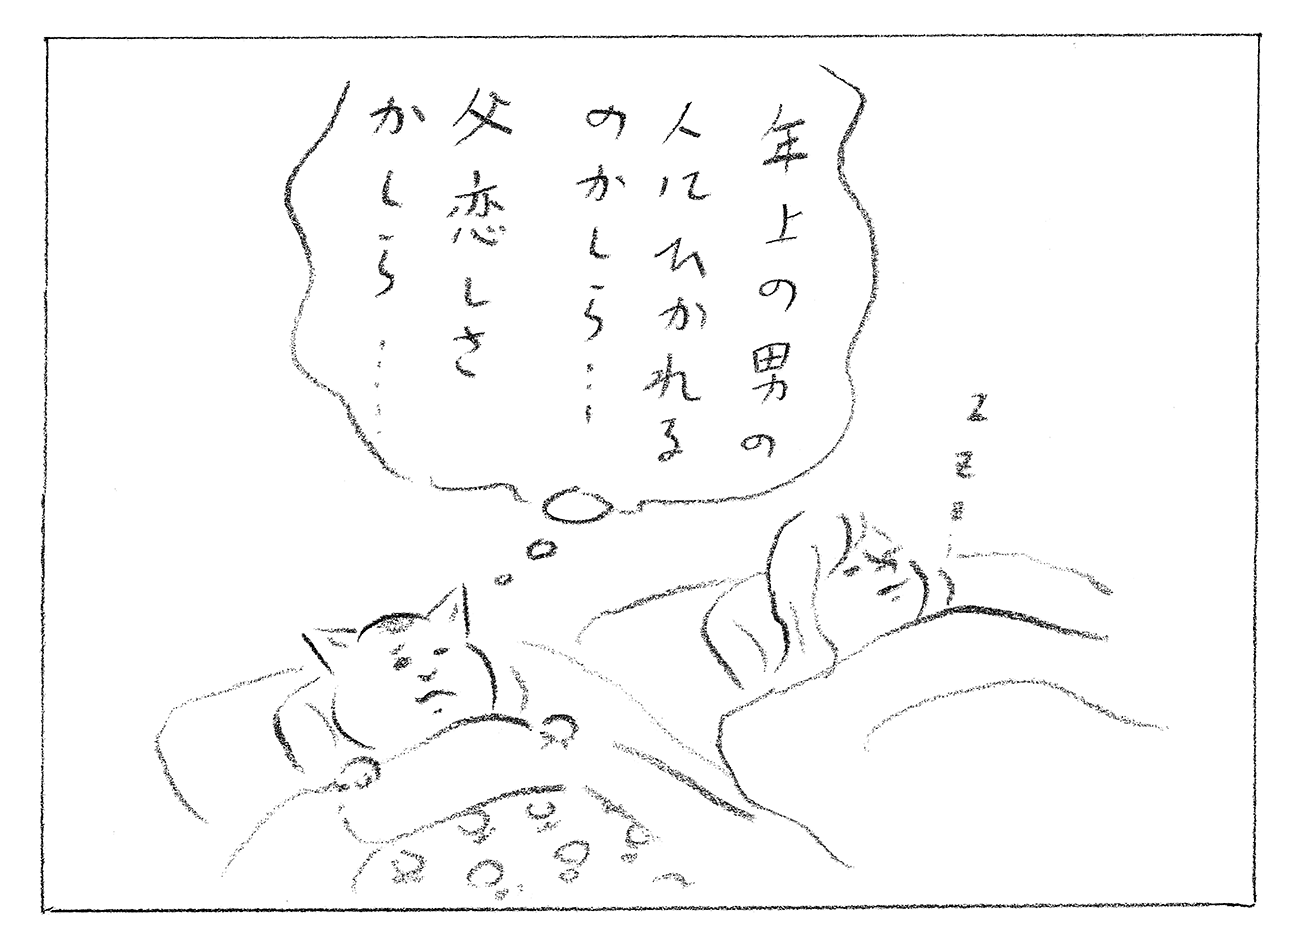 年上の男の
人にひかれる
のかしら……
父恋しさ
かしら……
z
z
z